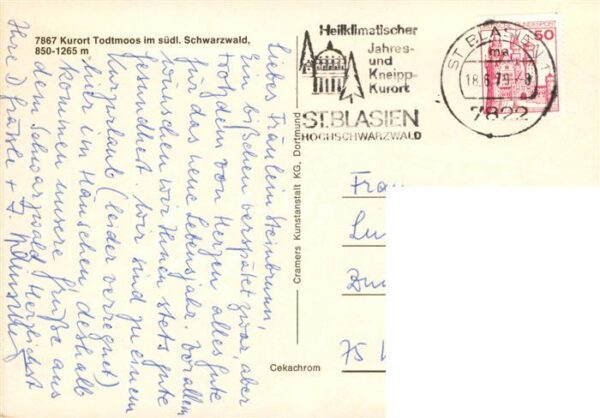 7867 Kurort Todtmoos im südl. Schwarzwald,
850-1265 m
Heilklimatischer
Jahres-
und
Kneipp-
Kurort
ST.BLASIEN
HOCHSCHWARZWALD
ST BLASIEN 1
ma
18.6.79.-8
7822
BUNDESPOST
50
Liebes Fräulein Steinbrunn,
Ein bißchen verspätet zwar, aber
trotzdem von Herzen alles Gute
für das neue Lebensjahr. Vor allem
wünschen wir Ihnen stets gute
Gesundheit. Wir sind zu einem
Kurzurlaub (leider verregnet)
hier im Häuschen, deshalb
kommen unsere Grüße aus
dem Schwarzwald. Herzlichst
Ihre D. + F.
Cramers Kunstanstalt KG, Dortmund
Cekachrom
Frau
75